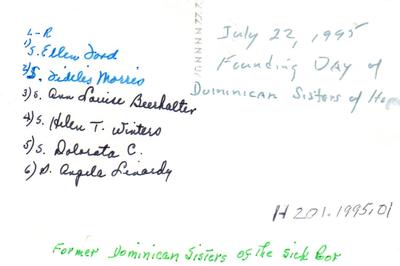 L-R
1) S. Ellen Ford
2) S. Fidelis Morris
3) S. Ann Louise Beerhalter
4) S. Helen T. Winters
5) S. Dolorata C.
6) S. Angela Linardy
July 22, 1995
Founding Day of
Dominican Sisters of Hope
H 201.1995.01
Former Dominican Sisters of the Sick Poor